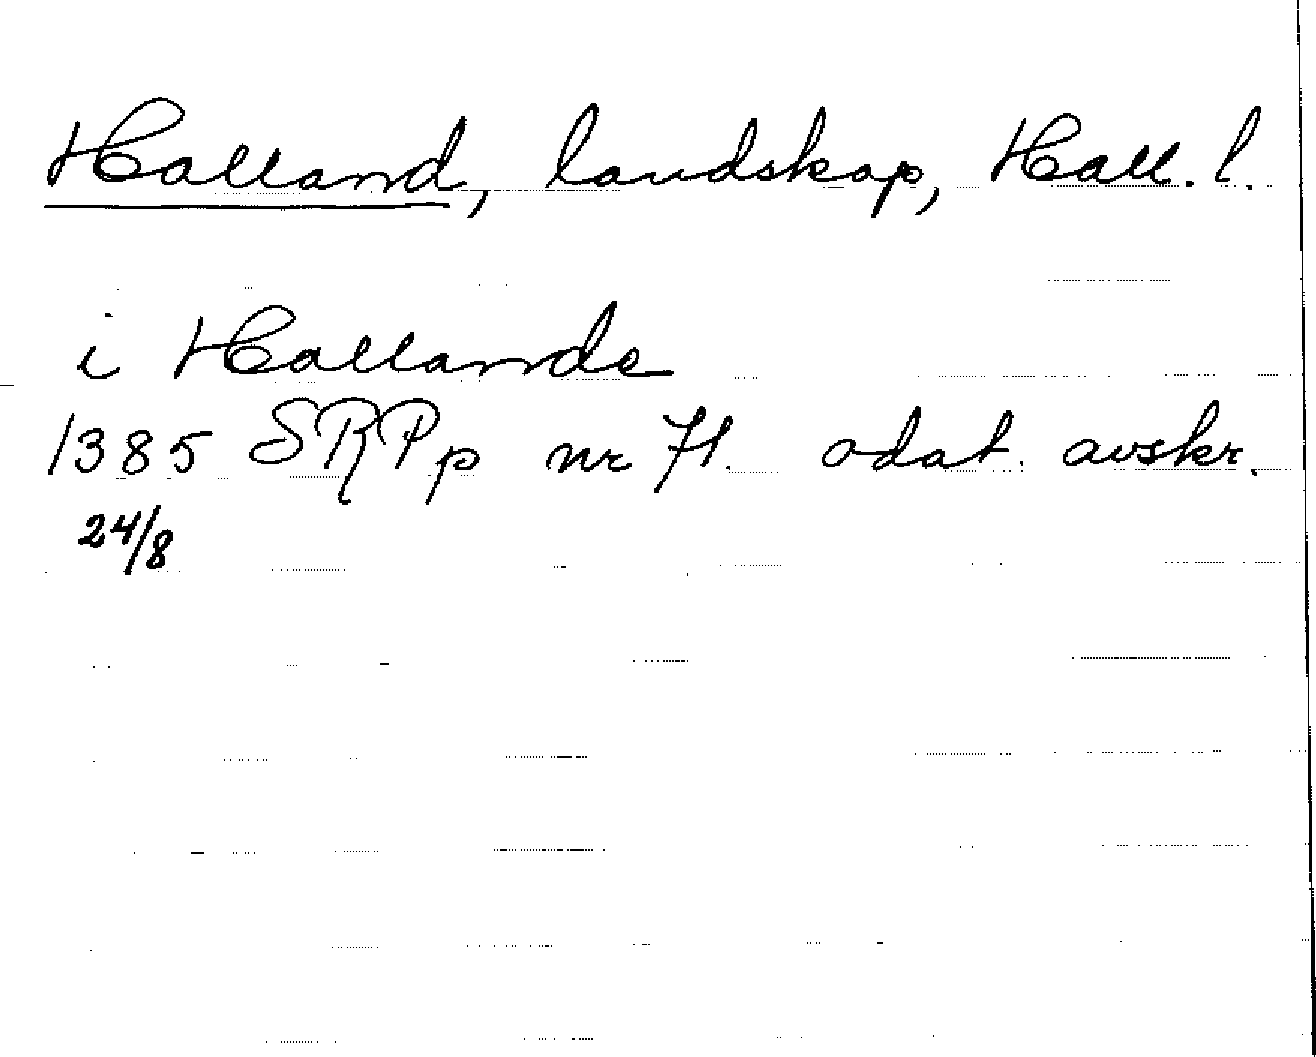 Halland, landskap, Hall. l.
i Hallande
1385 SRPp nr 71. odat. avskr.
24/8